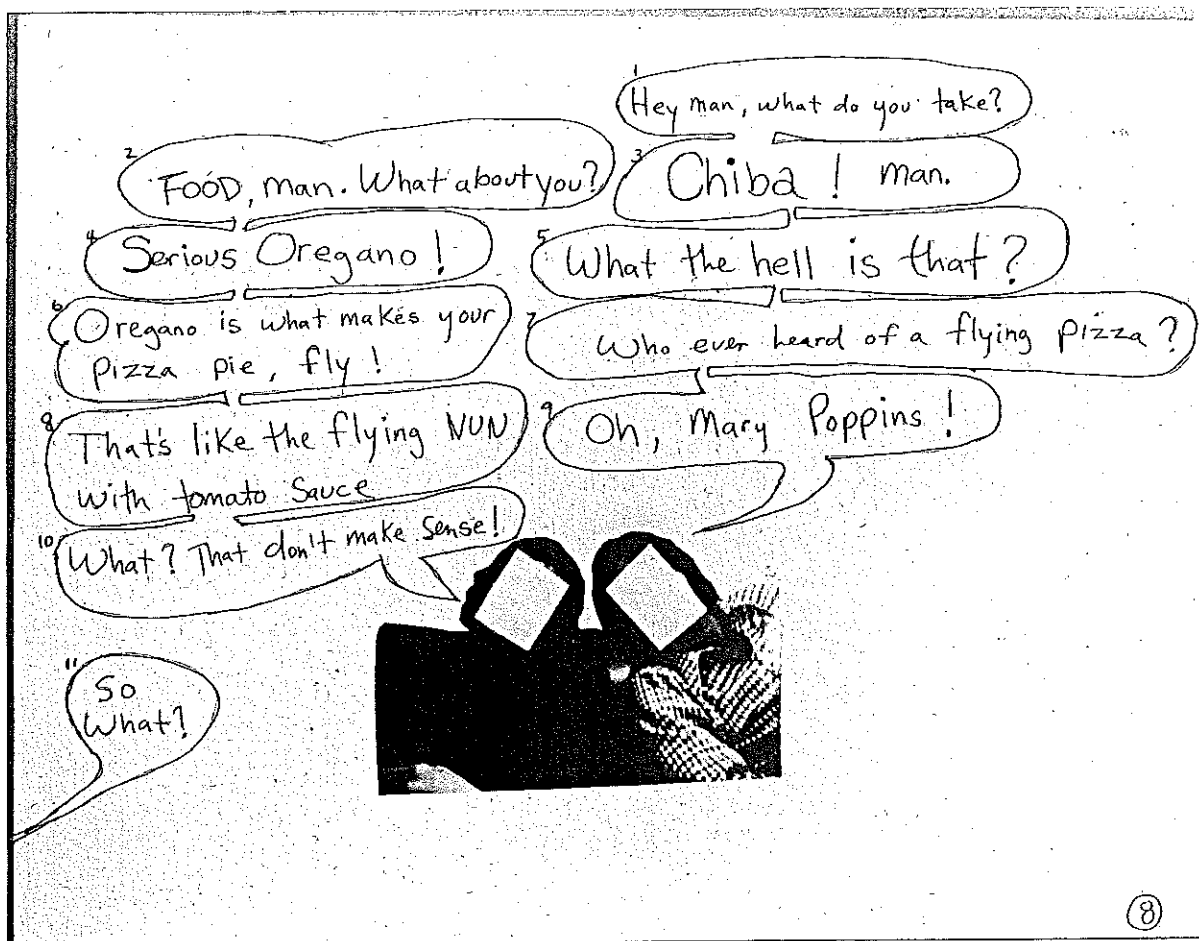 1 Hey man, what do you take?
2 FOOD, man. What about you?
3 Chiba! man.
4 Serious Oregano!
5 What the hell is that?
6 Oregano is what makes your
pizza pie, fly!
7 Who ever heard of a flying pizza?
8 That's like the flying NUN
with tomato Sauce
9 Oh, Mary Poppins!
10 What? That don't make sense!
11 So
What?
8